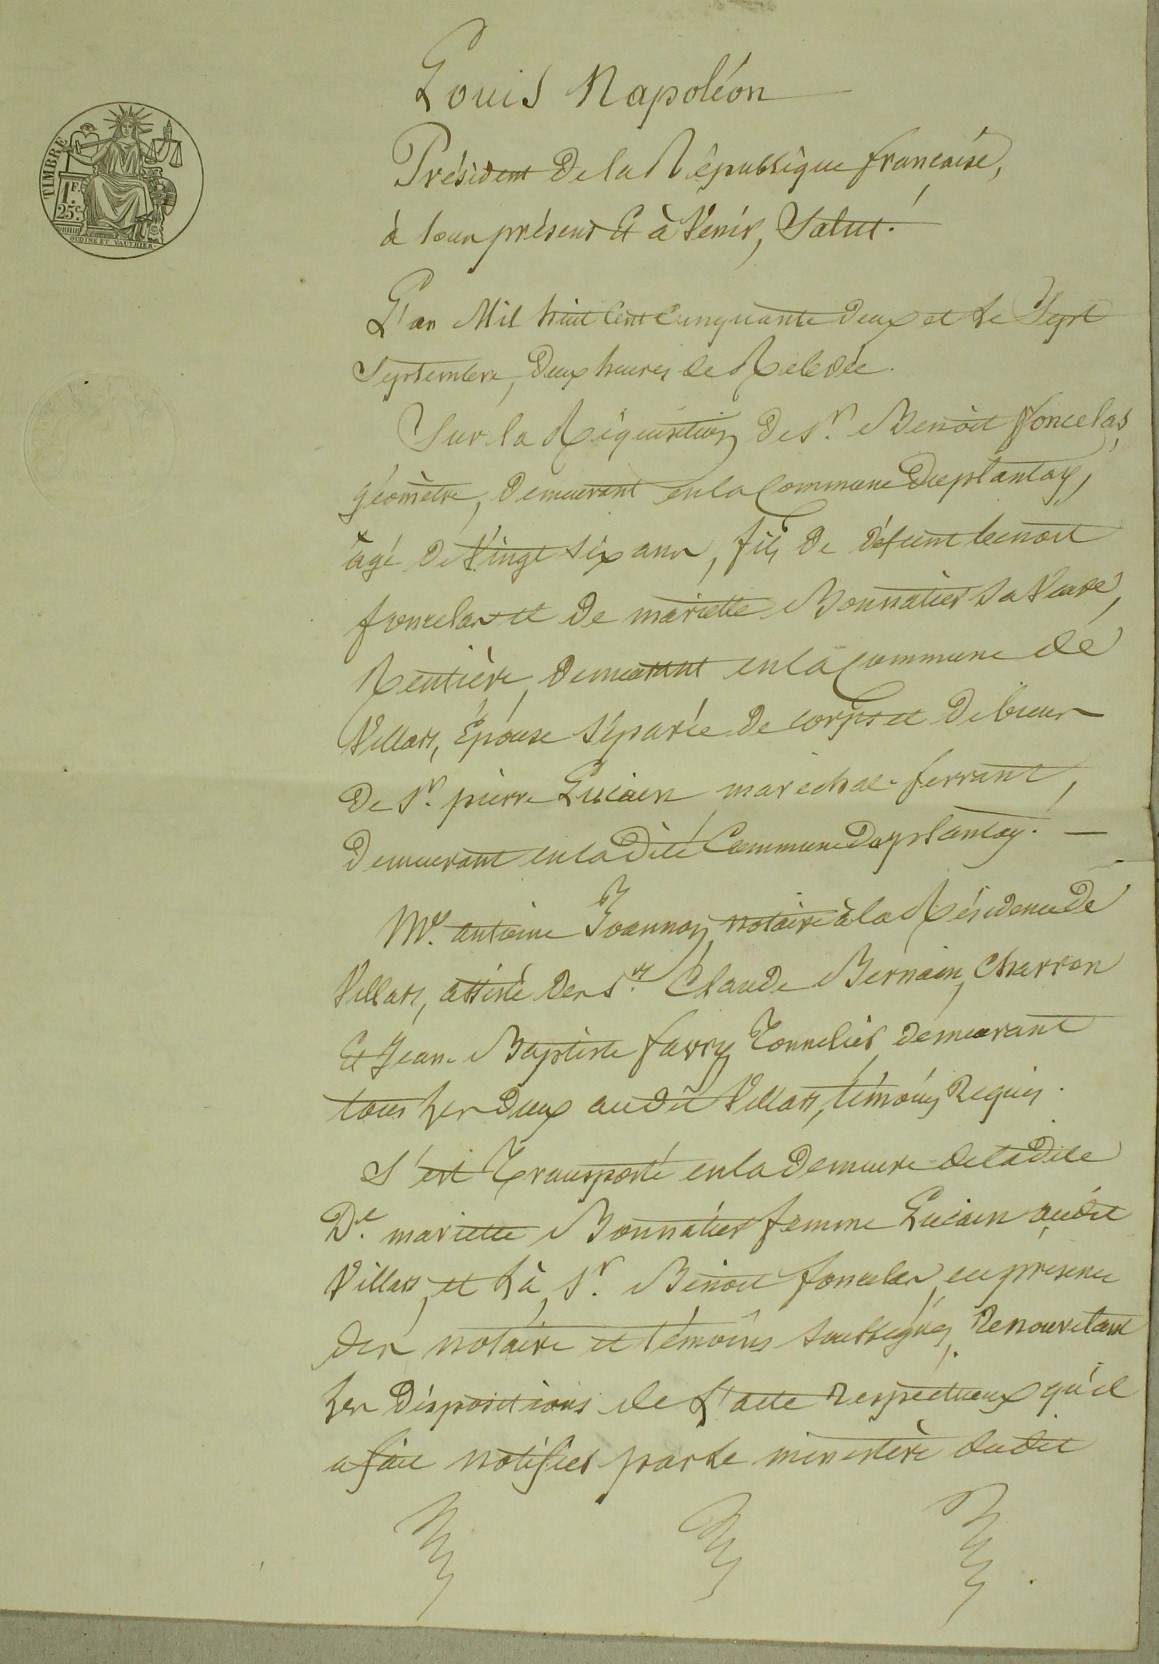 TIMBRE
1F.
25c.
OUDINÉ ET VAUTHIER
Louis Napoléon
Président de la République française,
à tous présens et à Venir, Salut.
L'an Mil huit Cent Cinquante deux et Le Sept
Septembre, deux heures de Relevée.
Sur la Réquisition de Sr. Benoît foncelas,
géomètre, demeurant en la Commune Duplantay,
âgé de Vingt six ans, fils de défunt benoit
foncelas et de mariette Bonnatier sa Veuve,
Rentière, demeurant en la Commune de
Villars, Épouse séparée de corps et de biens
de Sr. pierre Lucien maréchal-ferrant,
demeurant en la dite Commune Duplantay.
Me. antoine Joannon, notaire à la Résidence de
Villars, assisté des Srs. Claude Bernain, Charron
Et Jean-Baptiste favry, Tonnelier, demeurant
tous Les deux audit Villars, témoins Requis.
S'est Transporté en la demeure de la dite
De. mariette Bonnatier femme Lucien audit
Villars, et Là, Sr. Benoit foncelas, en présence
des notaire et témoins soussignés, Renouvelant
Les dispositions de L'acte Respectueux qu'il
a fait notifier par Le ministère dudit